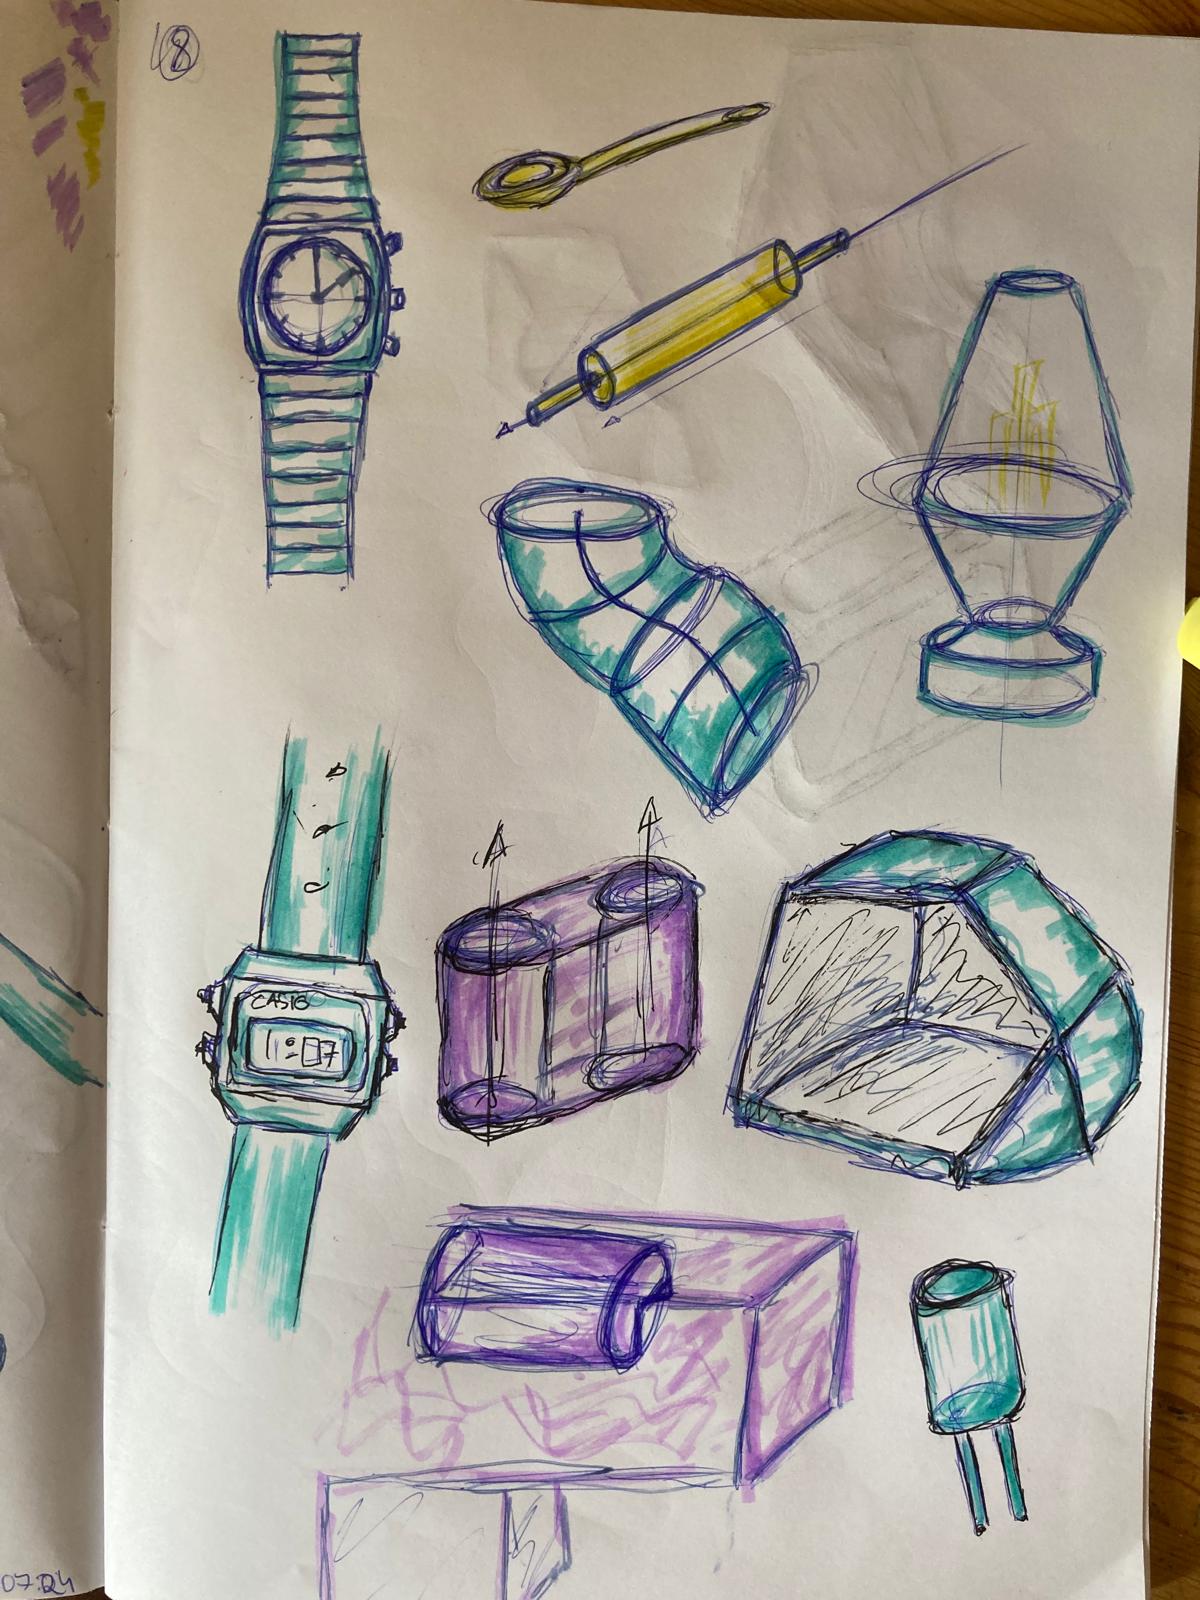 8
CASIO
11:07
07.24